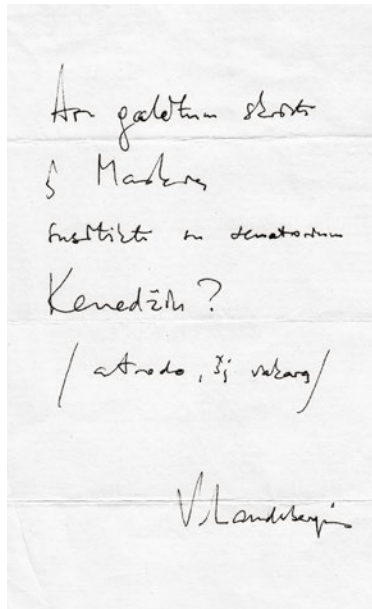 Ar galėtum skristi
į Maskvą
susitikti su senatorium
Kenedžiu?
/atrodo, šį vakarą/
V. Landsbergis